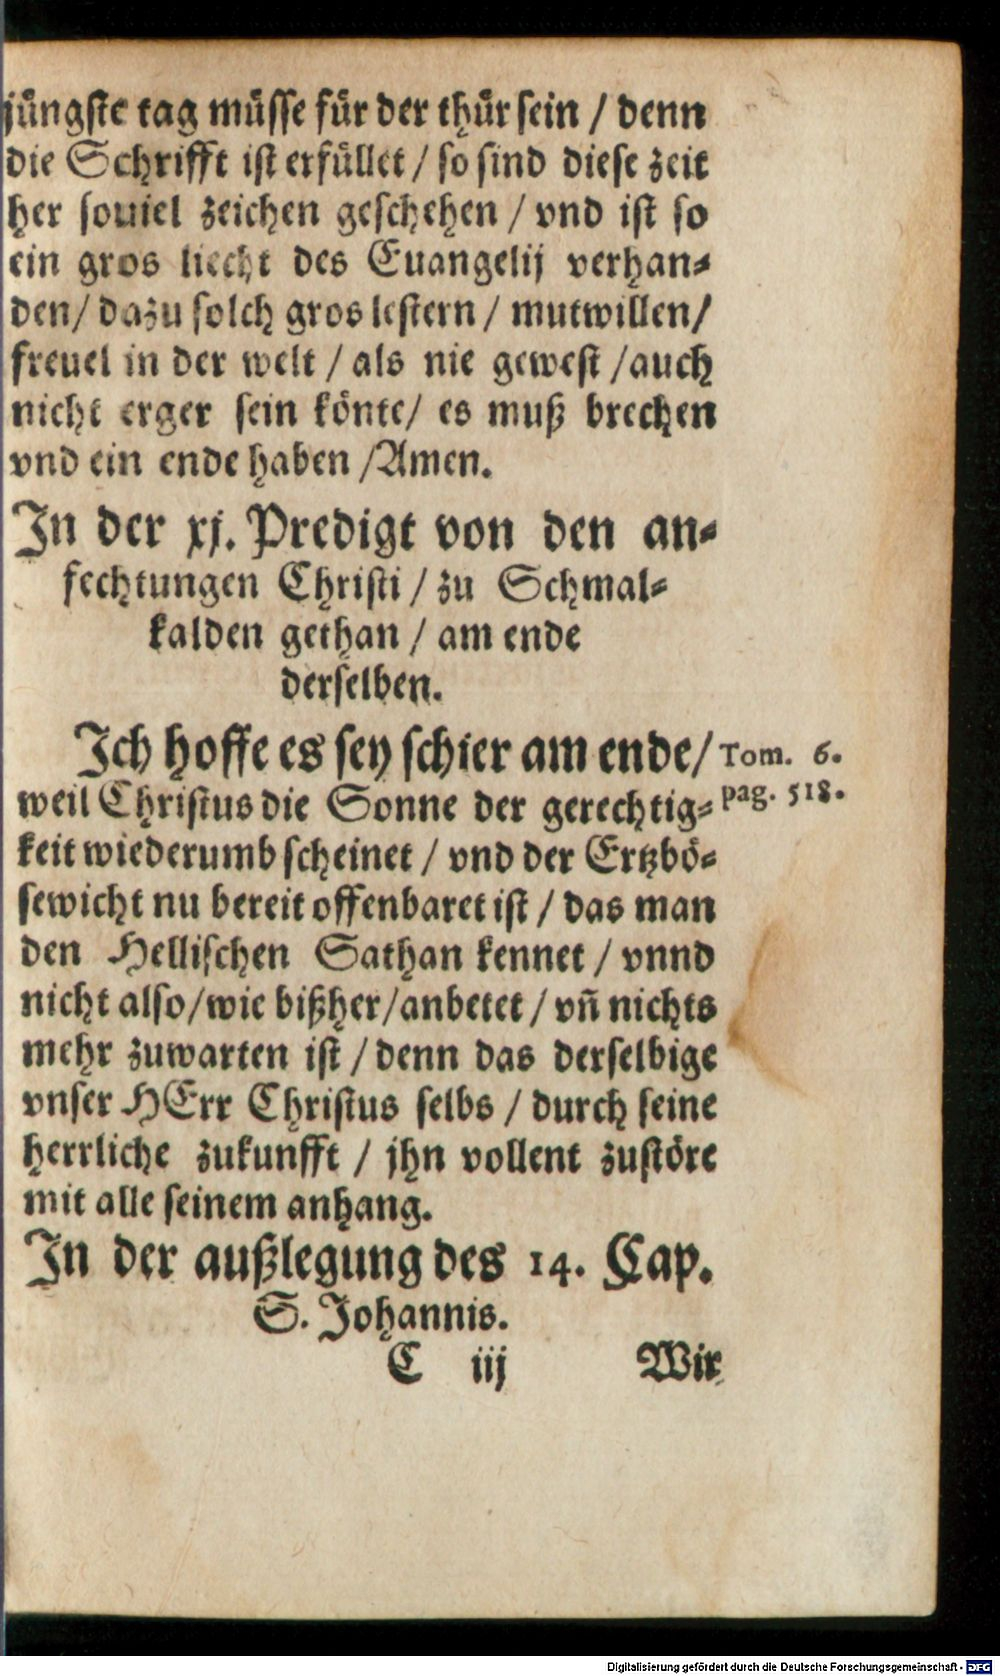 jüngste tag müsse für der thür sein / denn
die Schrifft ist erfüllet / so sind diese zeit
her souiel zeichen geschehen / vnd ist so
ein gros liecht des Euangelij verhan-
den / dazu solch gros lestern / mutwillen /
freuel in der welt / als nie gewest / auch
nicht erger sein könte / es muß brechen
vnd ein ende haben / Amen.
In der xj. Predigt von den an-
fechtungen Christi / zu Schmal-
kalden gethan / am ende
derselben.
Ich hoffe es sey schier am ende / Tom. 6.
weil Christus die Sonne der gerechtig- pag. 518.
keit wiederumb scheinet / vnd der Ertzbö-
sewicht nu bereit offenbaret ist / das man
den Hellischen Sathan kennet / vnnd
nicht also / wie bißher / anbetet / vñ nichts
mehr zuwarten ist / denn das derselbige
vnser HErr Christus selbs / durch seine
herrliche zukunfft / jhn vollent zustöre
mit alle seinem anhang.
In der außlegung des 14. Cap.
S. Johannis.
C iij Wir
Digitalisierung gefördert durch die Deutsche Forschungsgemeinschaft - DFG